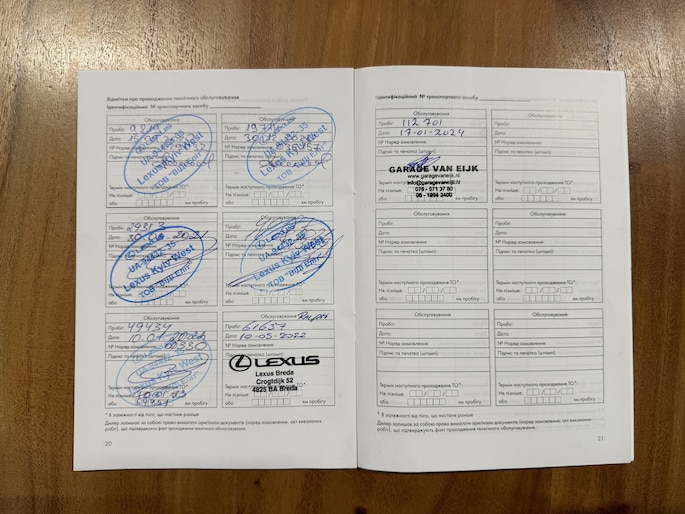 Відмітки про проходження технічного обслуговування
Ідентифікаційний № транспортного засобу
Обслуговування
Пробіг:
Дата:
№ Наряд-замовлення:
Підпис та печатка (штамп):
UA-94432-35
Lexus Kyiv West
ТОВ "ВІДІ ЕЛІТ"
Термін наступного проходження ТО*:
Не пізніше:
або
км пробігу
Обслуговування
Пробіг:
Дата:
№ Наряд-замовлення:
Підпис та печатка
Lexus Kyiv West
ТОВ "ВІДІ ЕЛІТ"
Термін наступного проходження ТО*:
Не пізніше:
або
км пробігу
Обслуговування
Пробіг: 29313
Дата: 30 2021
№ Наряд
Підпис
LEXUS
UA-94432-35
Lexus Kyiv West
ТОВ "ВІДІ ЕЛІТ"
або
км пробігу
Обслуговування
Пробіг:
Дата:
№ Наряд
Підпис
LEXUS
UA-94432-35
Lexus Kyiv West
ТОВ "ВІДІ ЕЛІТ"
Не пізніше:
або
км пробігу
Обслуговування
Пробіг: 49434
Дата: 10.01.2022
№ Наряд-замовлення:
Підпис та печатка (штамп):
Lexus Kyiv West
Термін наступного проходження ТО*:
Не пізніше:
або
км пробігу
Обслуговування
Пробіг: 61637
Дата: 10-05-2022
№ Наряд-замовлення:
Підпис та печатка (штамп):
LEXUS
Lexus Breda
Crogtdijk 52
4825 BA Breda
Термін
Не пізніше:
або
км пробігу
* В залежності від того, що настане раніше
Дилер залишає за собою право вимагати оригінали документів (наряд замовлення, акт виконаних
робіт), що підтверджують факт проходження технічного обслуговування.
20
Ідентифікаційний № транспортного засобу
Обслуговування
Пробіг: 112 701
Дата: 17-01-2024
№ Наряд-замовлення:
Підпис та печатка (штамп):
GARAGE VAN EIJK
www.garagevaneijk.nl
info@garagevaneijk.nl
076 - 571 37 50
06 - 1994 3400
Термін наступного
Не пізніше:
або
км пробігу
Обслуговування
Пробіг:
Дата:
№ Наряд-замовлення:
Підпис та печатка (штамп):
Термін наступного проходження ТО*:
Не пізніше:
або
км пробігу
Обслуговування
Пробіг:
Дата:
№ Наряд-замовлення:
Підпис та печатка (штамп):
Термін наступного проходження ТО*:
Не пізніше:
або
км пробігу
Обслуговування
Пробіг:
Дата:
№ Наряд-замовлення:
Підпис та печатка (штамп):
Термін наступного проходження ТО*:
Не пізніше:
або
км пробігу
Обслуговування
Пробіг:
Дата:
№ Наряд-замовлення:
Підпис та печатка (штамп):
Термін наступного проходження ТО*:
Не пізніше:
або
км пробігу
Обслуговування
Пробіг:
Дата:
№ Наряд-замовлення:
Підпис та печатка (штамп):
Термін наступного проходження ТО*:
Не пізніше:
або
км пробігу
* В залежності від того, що настане раніше
Дилер залишає за собою право вимагати оригінали документів (наряд замовлення, акт виконаних
робіт), що підтверджують факт проходження технічного обслуговування.
21